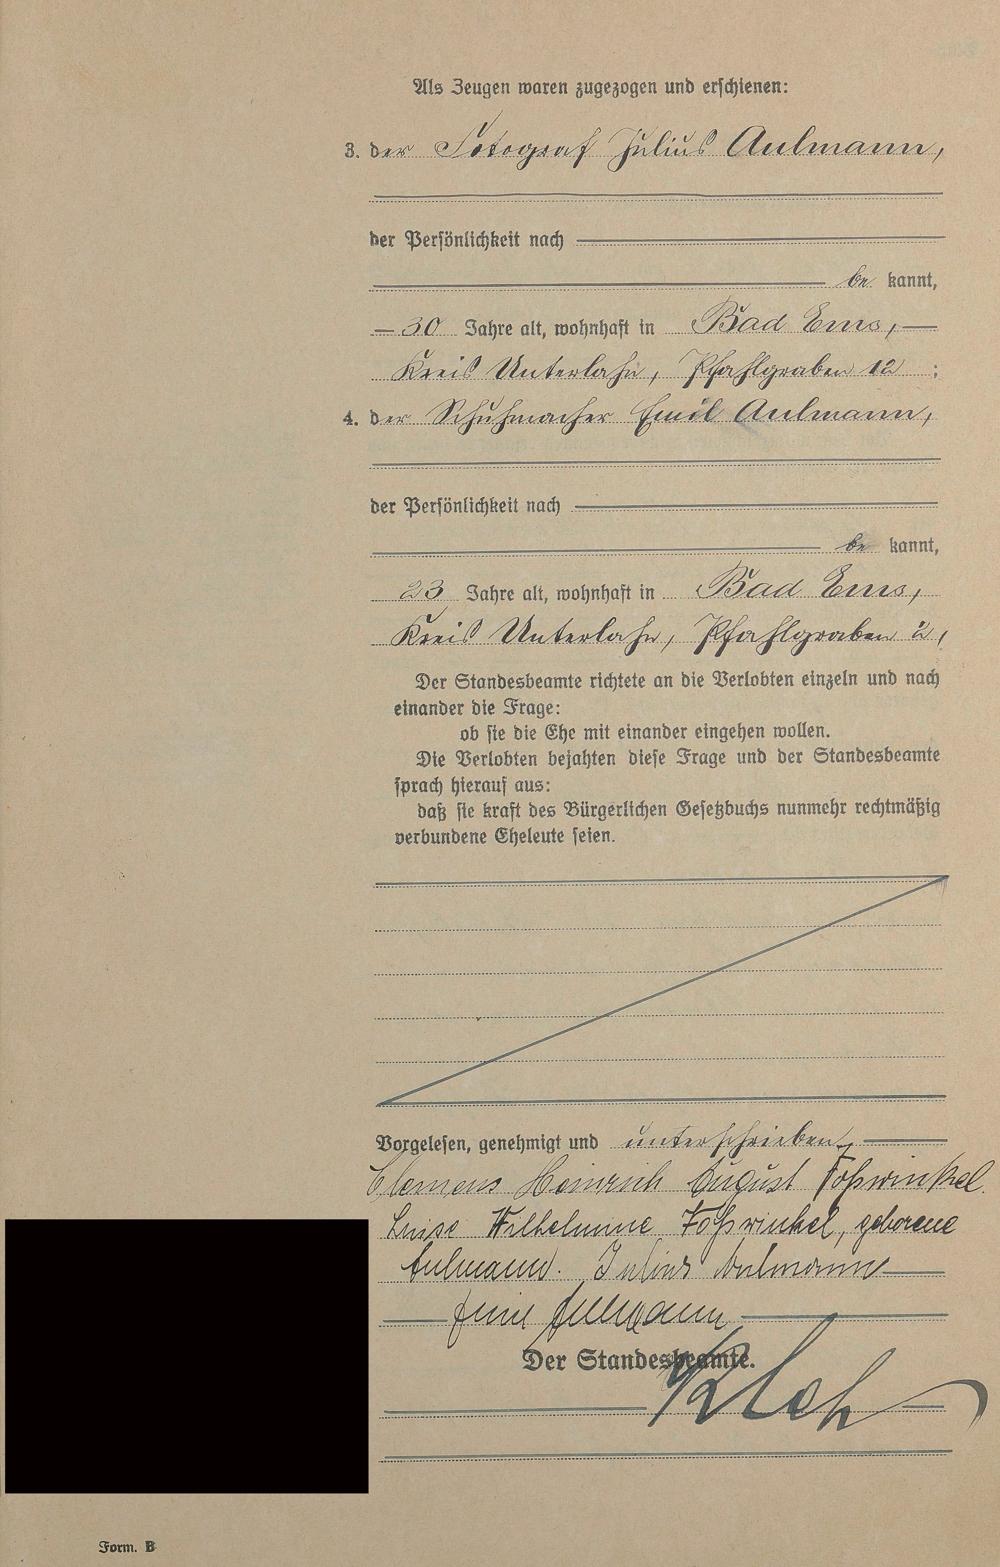 Als Zeugen waren zugezogen und erschienen:
3. der Fotograf Julius Aulmann,
der Persönlichkeit nach
be kannt,
30 Jahre alt, wohnhaft in Bad Ems,
Kreis Unterlahn, Pfahlgraben 12 ;
4. der Schuhmacher Emil Aulmann,
der Persönlichkeit nach
be kannt,
23 Jahre alt, wohnhaft in Bad Ems,
Kreis Unterlahn, Pfahlgraben 2,
Der Standesbeamte richtete an die Verlobten einzeln und nach
einander die Frage:
ob sie die Ehe mit einander eingehen wollen.
Die Verlobten bejahten diese Frage und der Standesbeamte
sprach hierauf aus:
daß sie kraft des Bürgerlichen Gesetzbuchs nunmehr rechtmäßig
verbundene Eheleute seien.
Vorgelesen, genehmigt und unterschrieben
Clemens Heinrich August Foßwinkel.
Luise Wilhelmine Foßwinkel, geborene
Aulmann. Julius Aulmann
Emil Aulmann
Der Standesbeamte.
Form. B